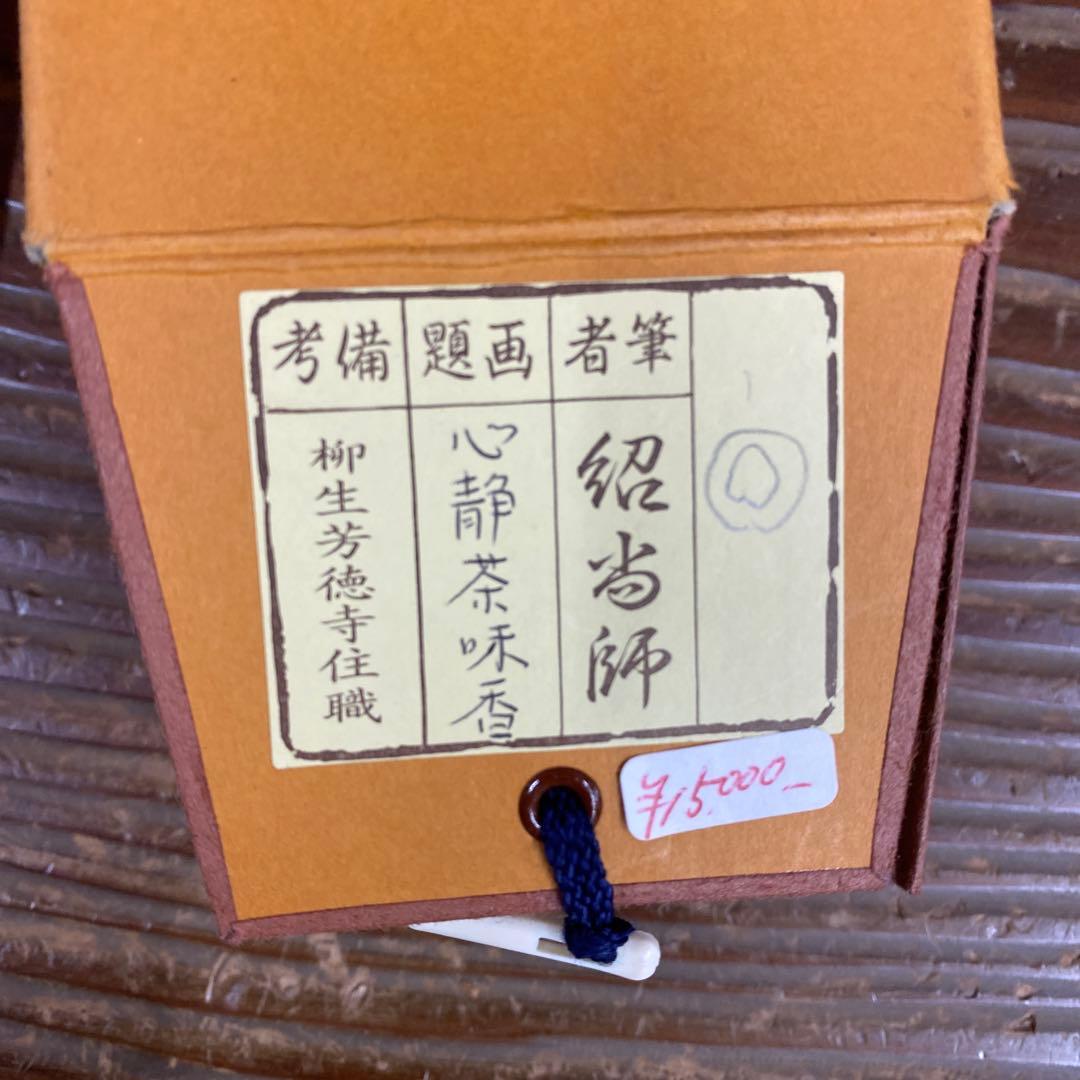 筆者
紹尚師
画題
心静茶味香
備考
柳生芳徳寺住職
¥15.000-